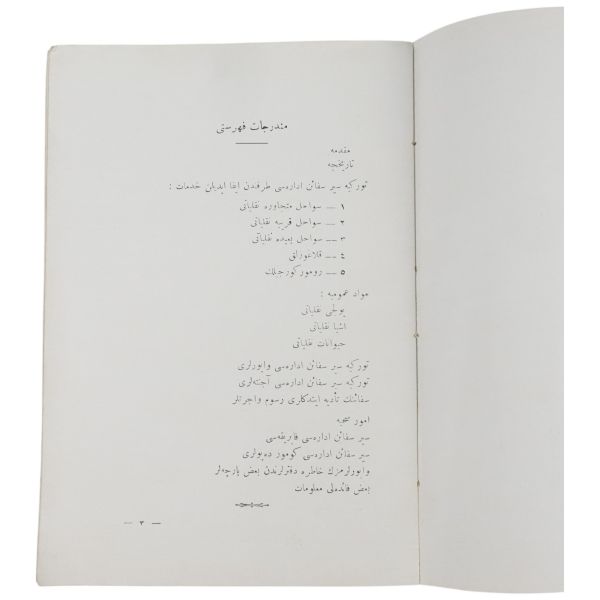 مندرجات فهرستی
مقدمه
تاریخچه
تورکیه سیر سفائن اداره‌سی طرفندن ایفا ایدیلن خدمات :
١ — سواحل متجاوره نقلیاتی
٢ — سواحل قریبه نقلیاتی
٣ — سواحل بعیده نقلیاتی
٤ — قلاغوزلق
٥ — رومورکورجیلك
مواد عمومیه :
یولجی نقلیاتی
اشیا نقلیاتی
حیوانات نقلیاتی
تورکیه سیر سفائن اداره‌سی واپورلری
تورکیه سیر سفائن اداره‌سی آجنته‌لری
سفائنك تأدیه ایتدکلری رسوم واجرتلر
امور صحیه
سیر سفائن اداره‌سی فابریقه‌سی
سیر سفائن اداره‌سی کومور ده‌پولری
واپورلرمزك خاطره دفترلرندن بعض پارچه‌لر
بعض فائده‌لی معلومات
— ٣ —